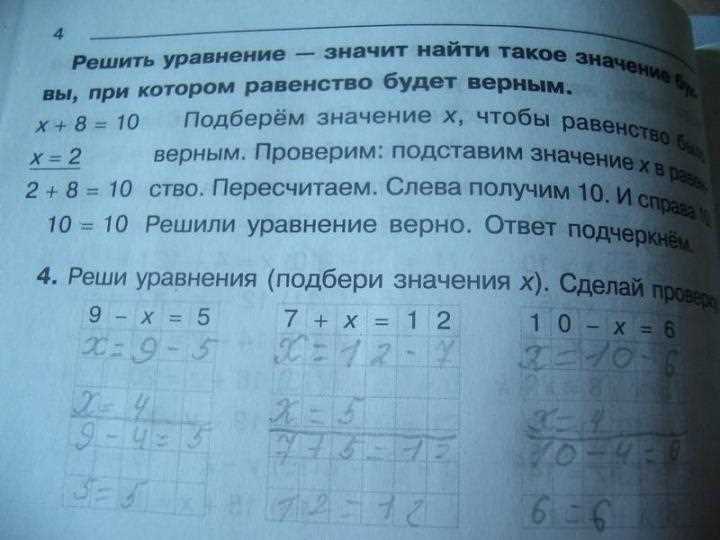 4
Решить уравнение — значит найти такое значение бук-
вы, при котором равенство будет верным.
x + 8 = 10 Подберём значение x, чтобы равенство было
x = 2 верным. Проверим: подставим значение x в равен-
2 + 8 = 10 ство. Пересчитаем. Слева получим 10. И справа 10.
10 = 10 Решили уравнение верно. Ответ подчеркнём.
4. Реши уравнения (подбери значения x). Сделай проверку
9 - x = 5 7 + x = 12 10 - x = 6
x = 9 - 5 x = 12 - 7 x = 10 - 6
x = 4 x = 5 x = 4
9 - 4 = 5 7 + 5 = 12 10 - 4 = 6
5 = 5 12 = 12 6 = 6